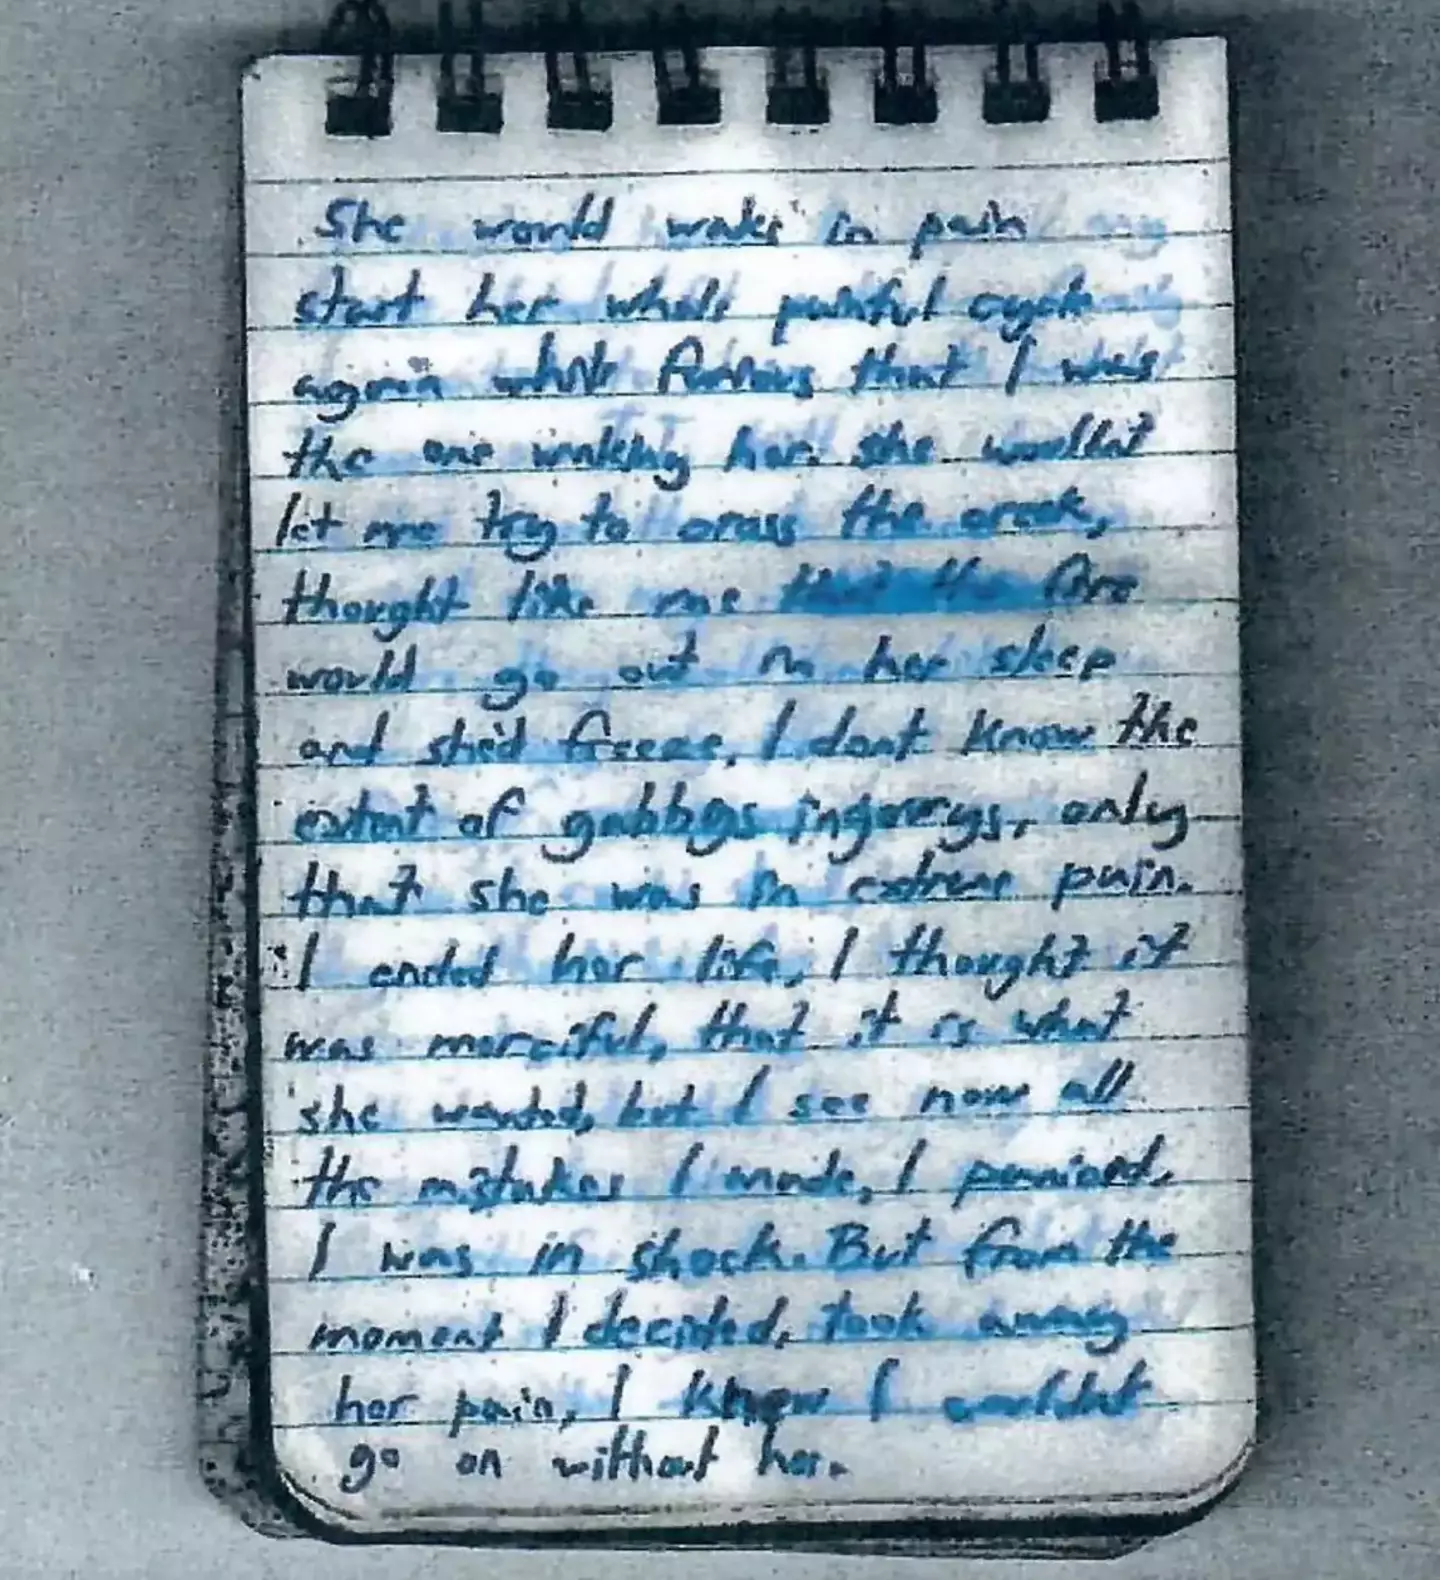 She would wake in pain
start her whole painful cycle
again while furious that I was
the one waking her. she wouldnt
let me try to cross the creek,
thought like me that the fire
would go out in her sleep
and she'd freeze. I dont know the
extent of gabbys injurys, only
that she was in extreme pain.
I ended her life, I thought it
was merciful, that it is what
she wanted, but I see now all
the mistakes I made, I panicked,
I was in shock. But from the
moment I decided, took away
her pain, I knew I wouldnt
go on without her.